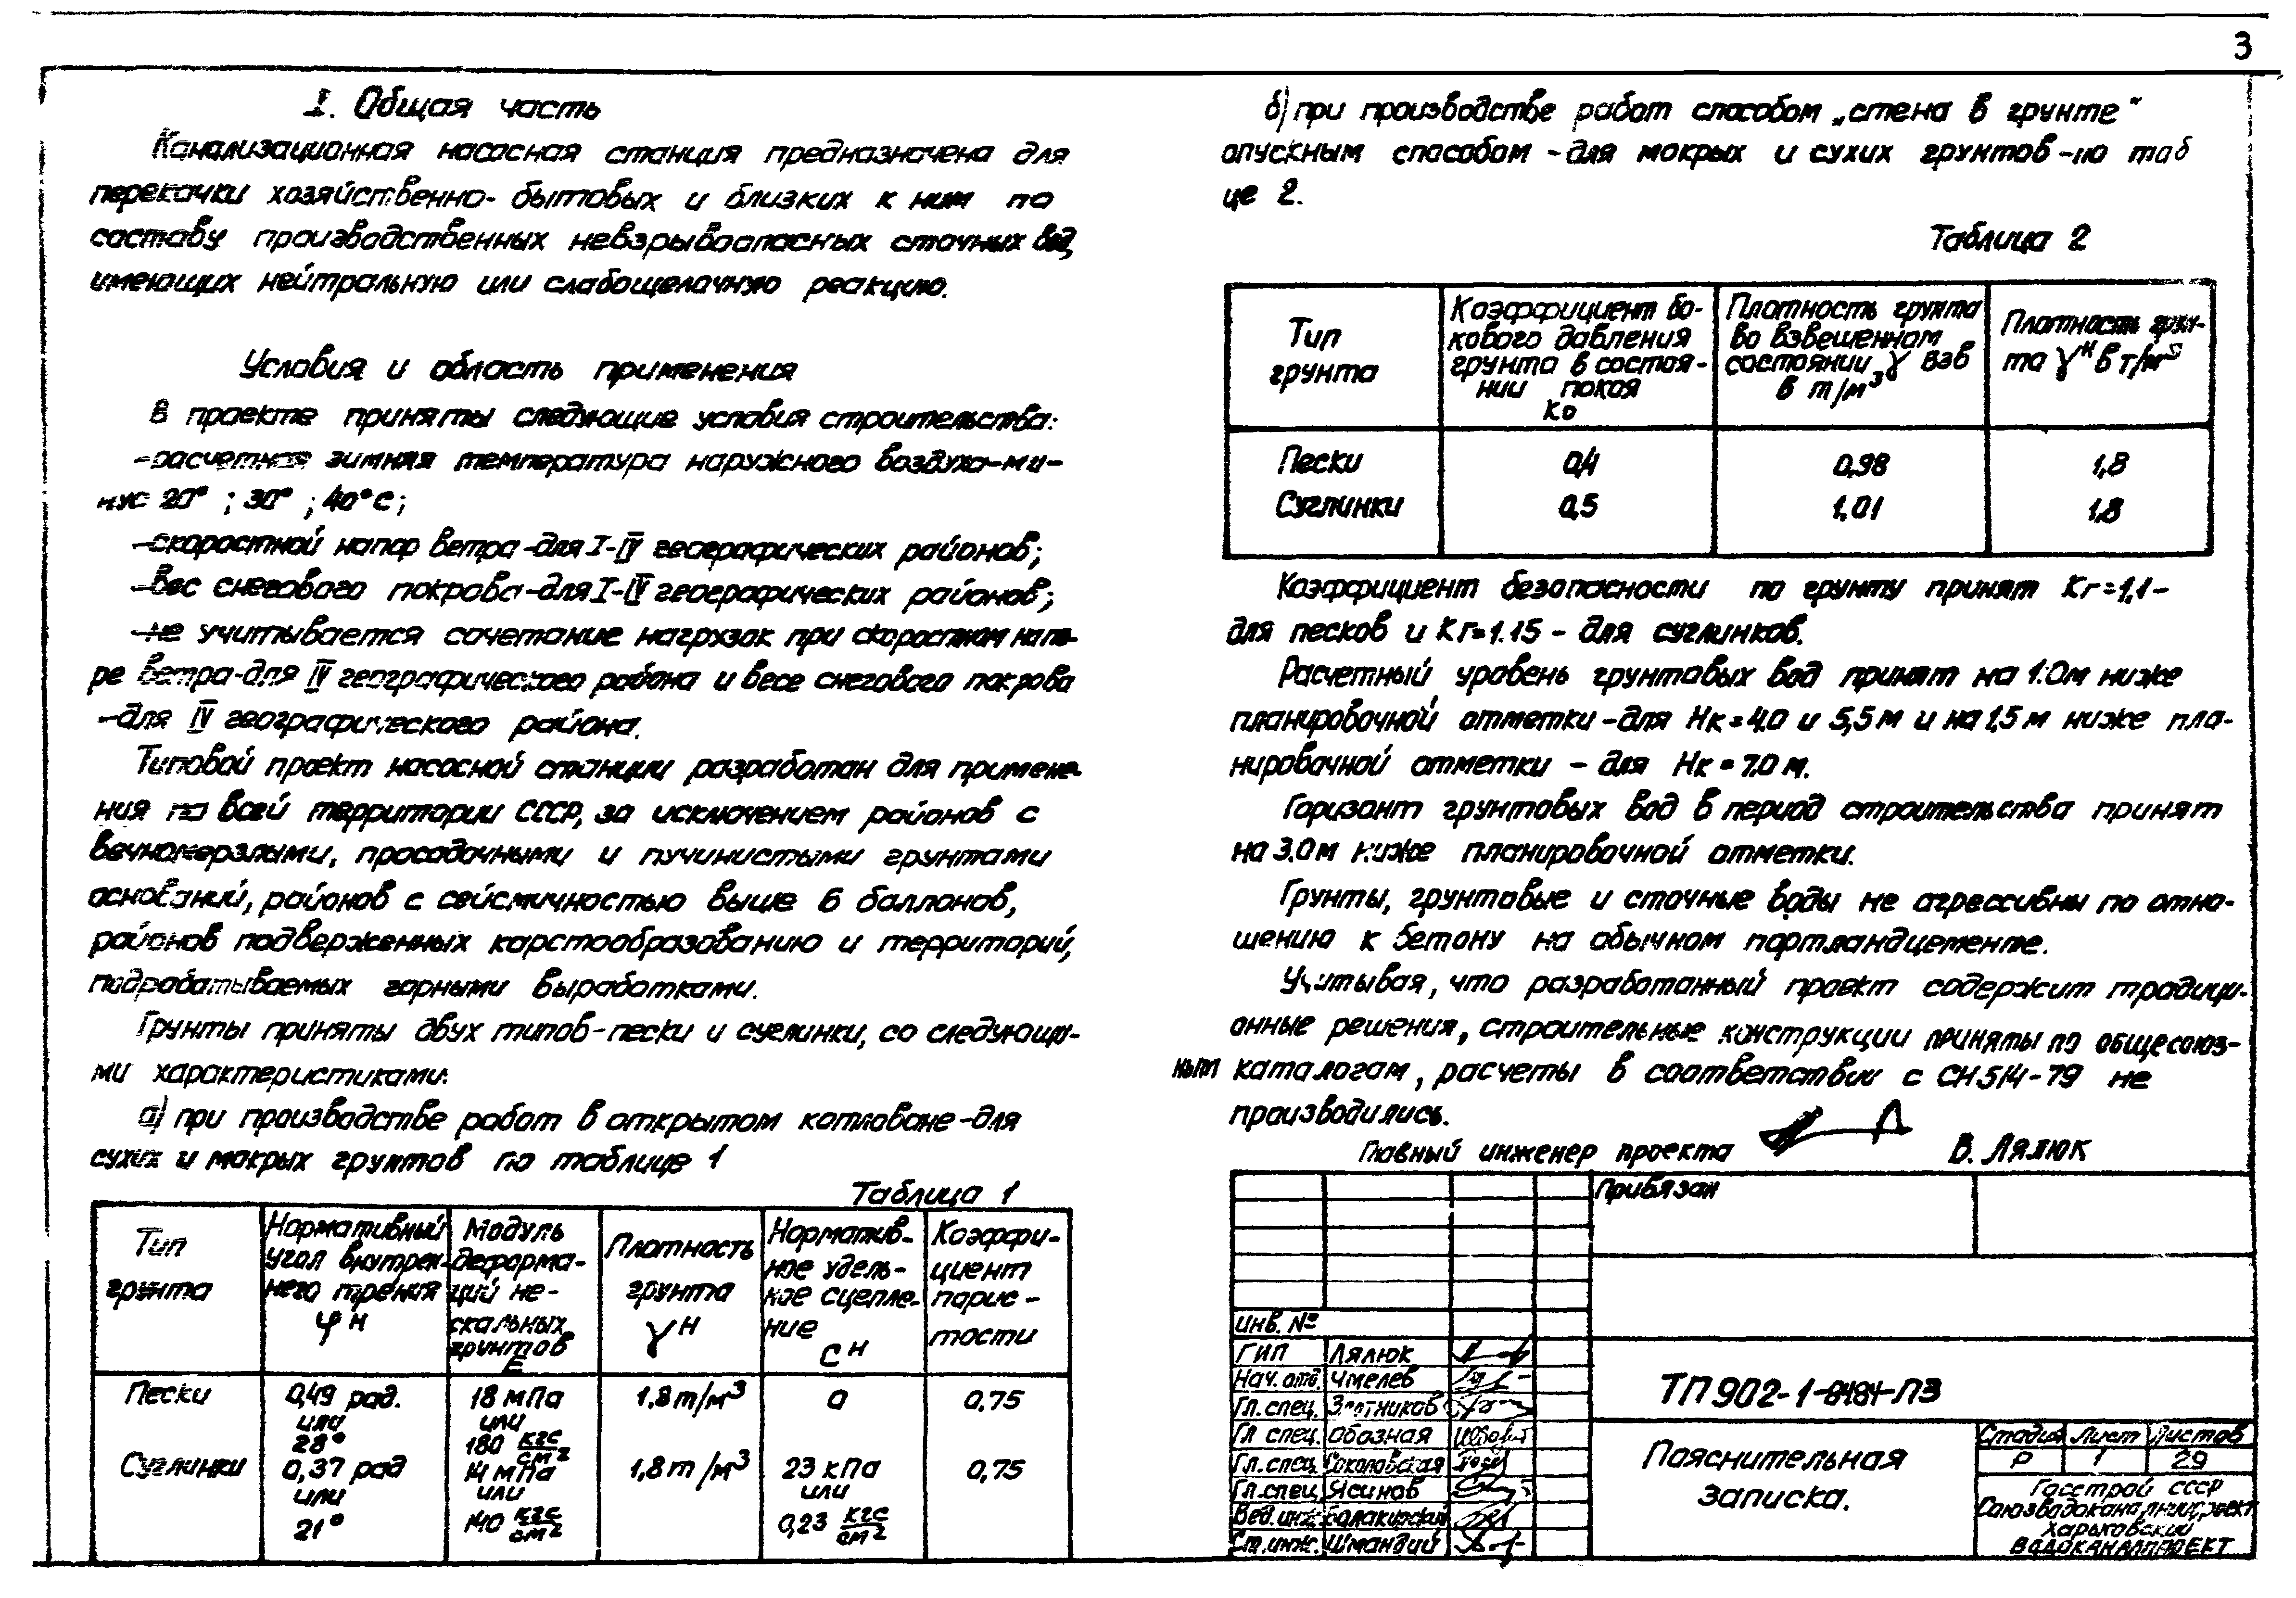 3
I. Общая часть
Канализационная насосная станция предназначена для
перекачки хозяйственно-бытовых и близких к ним по
составу производственных невзрывоопасных сточных вод,
имеющих нейтральную или слабощелочную реакцию.
Условия и область применения
В проекте приняты следующие условия строительства:
-расчетная зимняя температура наружного воздуха-ми-
нус 20° ; 30° ; 40°С;
-скоростной напор ветра-для I-IV географических районов;
-вес снегового покрова-для I-IV географических районов;
-не учитывается сочетание нагрузок при скоростном напо-
ре ветра-для IV географического района и весе снегового покрова
-для IV географического района.
Типовой проект насосной станции разработан для примене-
ния по всей территории СССР, за исключением районов с
вечномерзлыми, просадочными и пучинистыми грунтами
оснований, районов с сейсмичностью выше 6 баллонов,
районов подверженных карстообразованию и территорий,
подрабатываемых горными выработками.
Грунты приняты двух типов-пески и суглинки, со следующи-
ми характеристиками:
а) при производстве работ в открытом котловане-для
сухих и мокрых грунтов по таблице 1
Таблица 1
Тип грунта
Нормативный угол внутрен- него трения φн
Модуль деформа- ций не- скальных грунтов Е
Плотность грунта γн
Норматив- ное удель- ное сцепле- ние Сн
Коэффи- циент порис- тости
Пески 0,49 рад. или 28° 18 мПа или 180 кгс/см² 1,8 т/м³ 0 0,75
Суглинки 0,37 рад или 21° 14 мПа или 140 кгс/см² 1,8 т/м³ 23 кПа или 0,23 кгс/см² 0,75
б) при производстве работ способом „стена в грунте"
опускным способом - для мокрых и сухих грунтов - по таб
це 2.
Таблица 2
Тип грунта
Коэффициент бо- кового давления грунта в состоя- нии покоя Ко
Плотность грунта во взвешенном состоянии γ взв в т/м³
Плотность грун- та γн в т/м³
Пески 0,4 0,98 1,8
Суглинки 0,5 1,01 1,8
Коэффициент безопасности по грунту принят Кг=1,1-
для песков и Кг=1.15 - для суглинков.
Расчетный уровень грунтовых вод принят на 1.0м ниже
планировочной отметки - для Нк=4.0 и 5,5 м и на 1,5 м ниже пла-
нировочной отметки - для Нк=7.0 м.
Горизонт грунтовых вод в период строительства принят
на 3.0м ниже планировочной отметки.
Грунты, грунтовые и сточные воды не агрессивны по отно-
шению к бетону на обычном портландцементе.
Учитывая, что разработанный проект содержит традици-
онные решения, строительные конструкции приняты по общесоюз-
ным каталогам, расчеты в соответствии с СН514-79 не
производились.
Главный инженер проекта В. Лялюк
Привязан
инв. №
ГИП Лялюк
Нач. отд. Чмелев
Гл. спец. Злотников
Гл спец. Обозная
Гл. спец. Соколовская
Гл. спец. Ясинов
Вед. инж. Балакирский
Ст. инж. Шмандий
ТП902-1-84.84-ПЗ
Пояснительная
записка.
Стадия Лист Листов
Р 1 29
Госстрой СССР
Союзводоканалниипроект
Харьковский
ВОДОКАНАЛПРОЕКТ